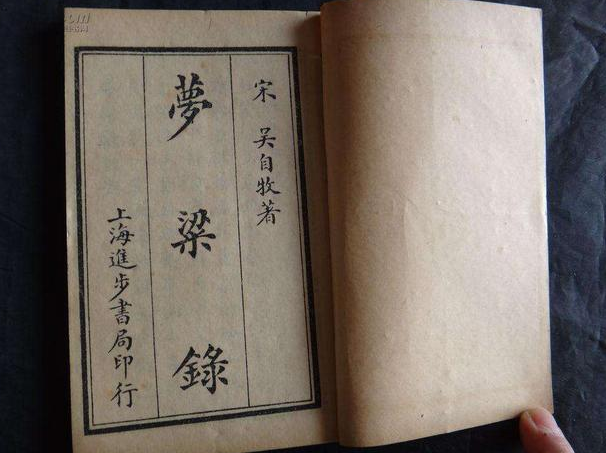 宋 吴自牧著
夢粱錄
上海進步書局印行